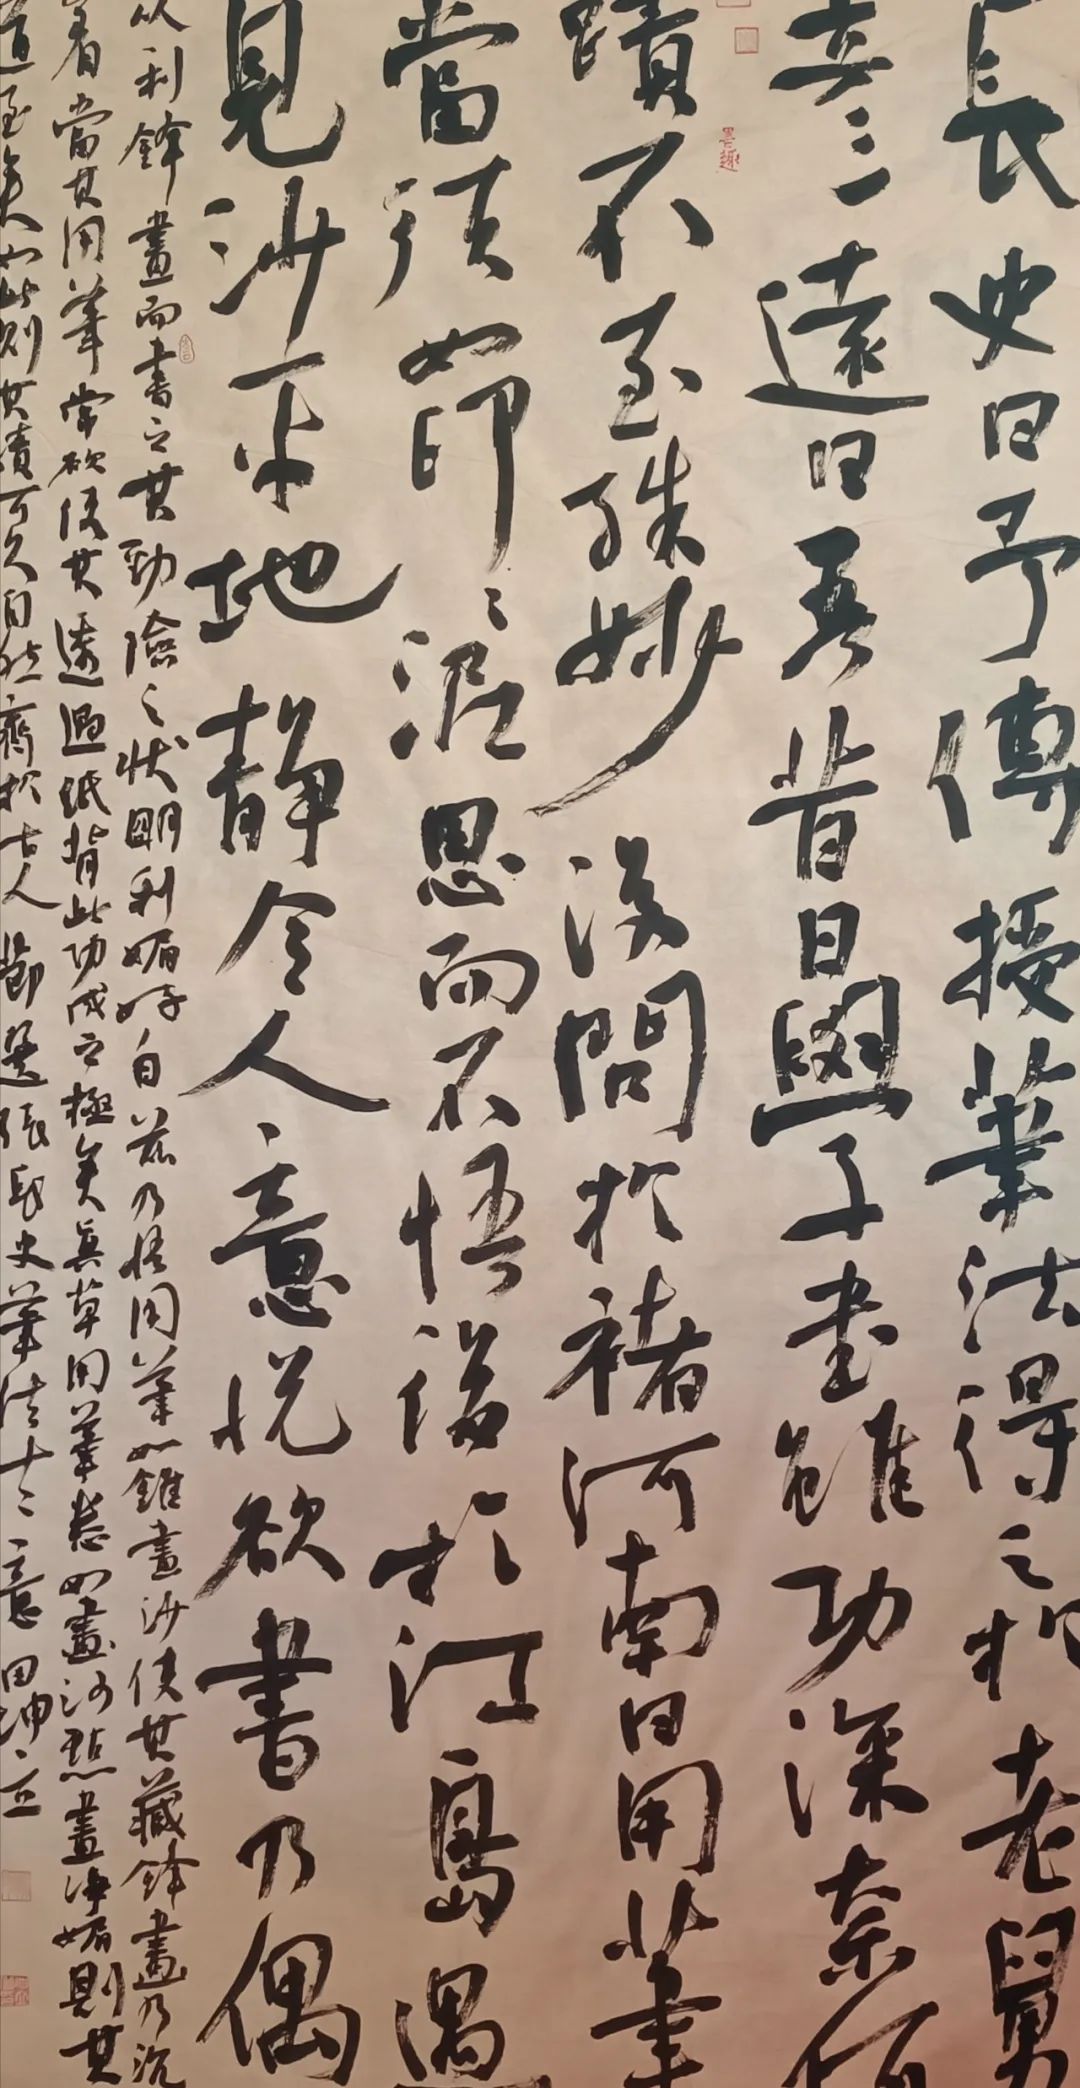 長史曰予傳授筆法得之於老舅
彥遠曰吾昔日學書雖功深奈何
蹟不至殊妙後問於褚河南曰用筆
當須如印印泥思而不悟後於江島遇
見沙平地靜令人意悅欲書乃偶
以利鋒畫而書之其勁險之狀明利媚好自茲乃悟用筆如錐畫沙使其藏鋒畫乃沉
着當其用筆常欲使其透過紙背此功成之極矣真草用筆悉如畫沙點畫淨媚則其
道至矣如此則其蹟可久自然齊於古人 節選張長史筆法十二意 田坤立
墨趣